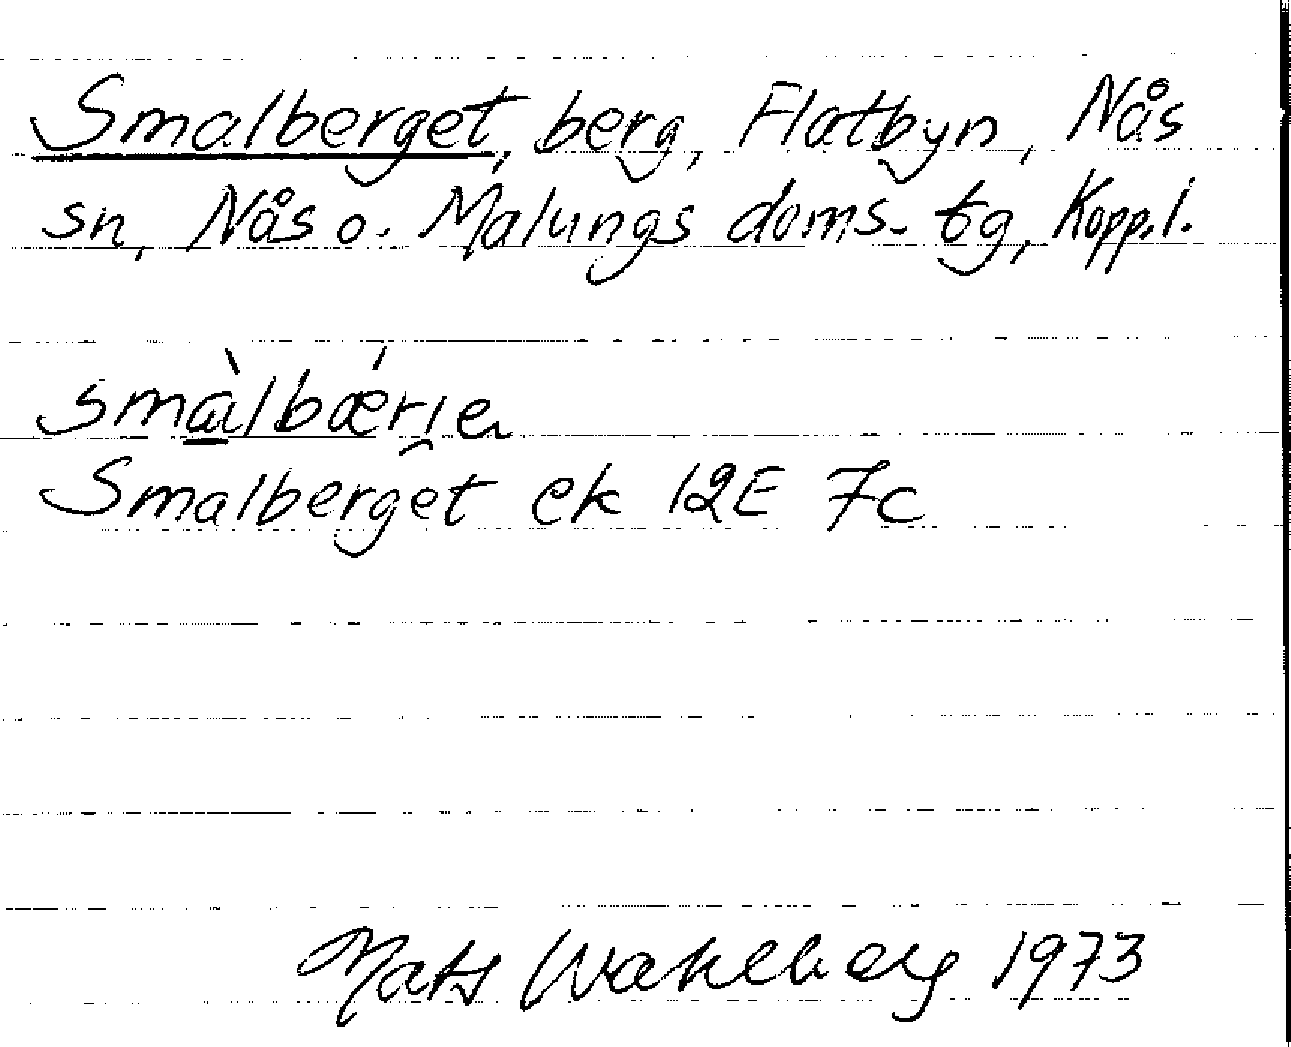 Smalberget, berg, Flatbyn, Nås
sn, Nås o. Malungs doms. tg, Kopp. l.
smàlbǽri̯e
Smalberget ek 12E 7c
Mats Wahlberg 1973